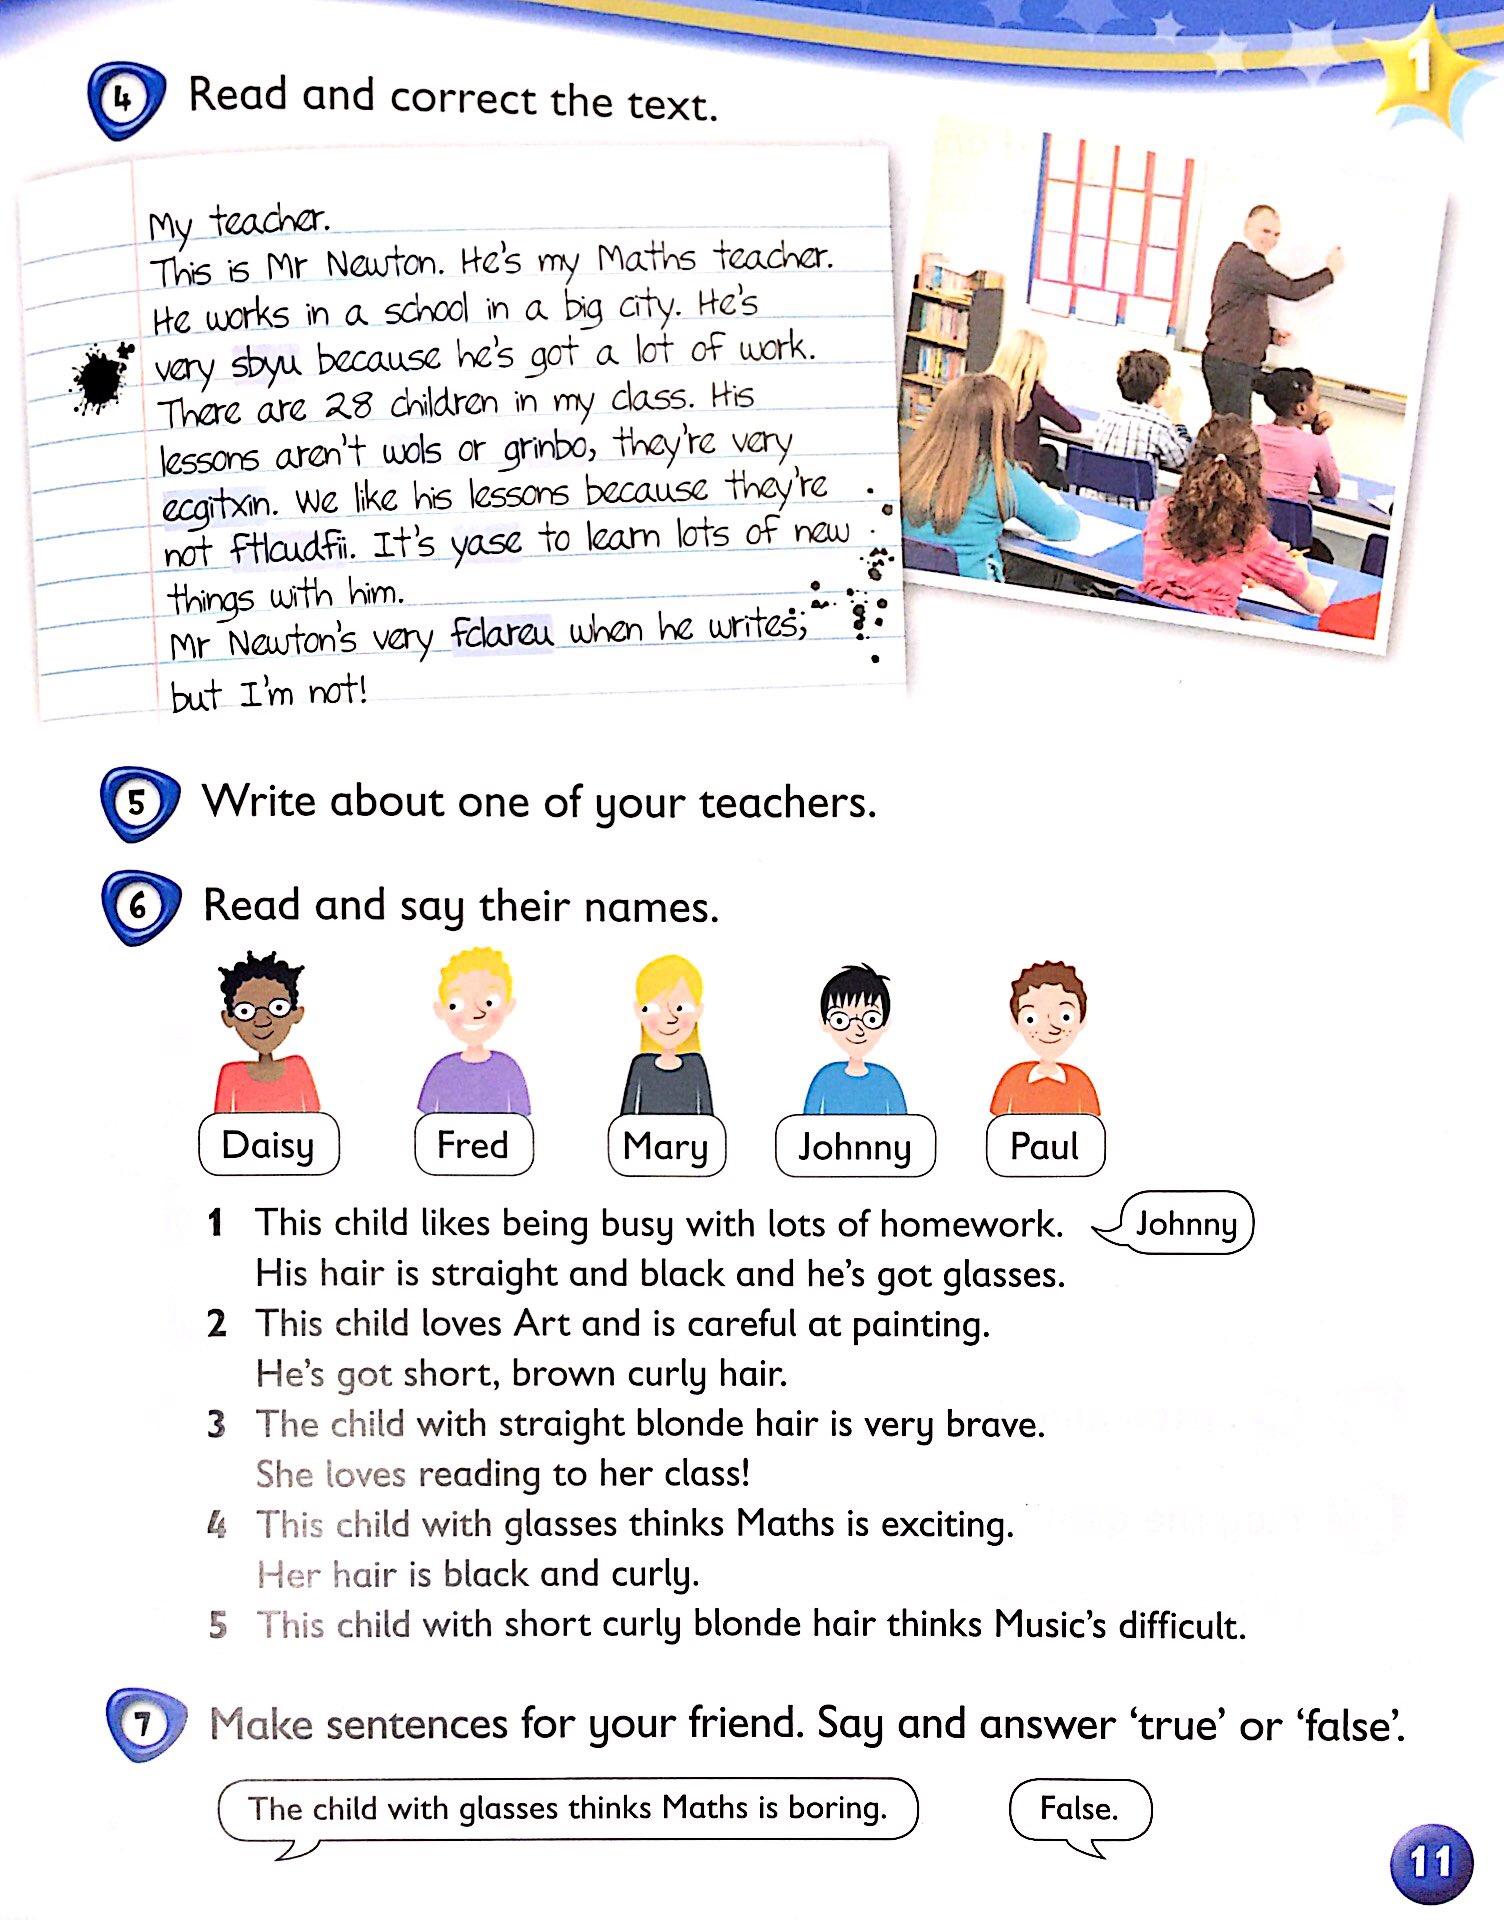 1
4 Read and correct the text.
My teacher.
This is Mr Newton. He's my Maths teacher.
He works in a school in a big city. He's
very sbyu because he's got a lot of work.
There are 28 children in my class. His
lessons aren't wols or grinbo, they're very
ecgitxin. We like his lessons because they're
not ftlcudfii. It's yase to learn lots of new
things with him.
Mr Newton's very fclareu when he writes,
but I'm not!
5 Write about one of your teachers.
6 Read and say their names.
Daisy Fred Mary Johnny Paul
1 This child likes being busy with lots of homework. Johnny
His hair is straight and black and he's got glasses.
2 This child loves Art and is careful at painting.
He's got short, brown curly hair.
3 The child with straight blonde hair is very brave.
She loves reading to her class!
4 This child with glasses thinks Maths is exciting.
Her hair is black and curly.
5 This child with short curly blonde hair thinks Music's difficult.
7 Make sentences for your friend. Say and answer 'true' or 'false'.
The child with glasses thinks Maths is boring. False.
11